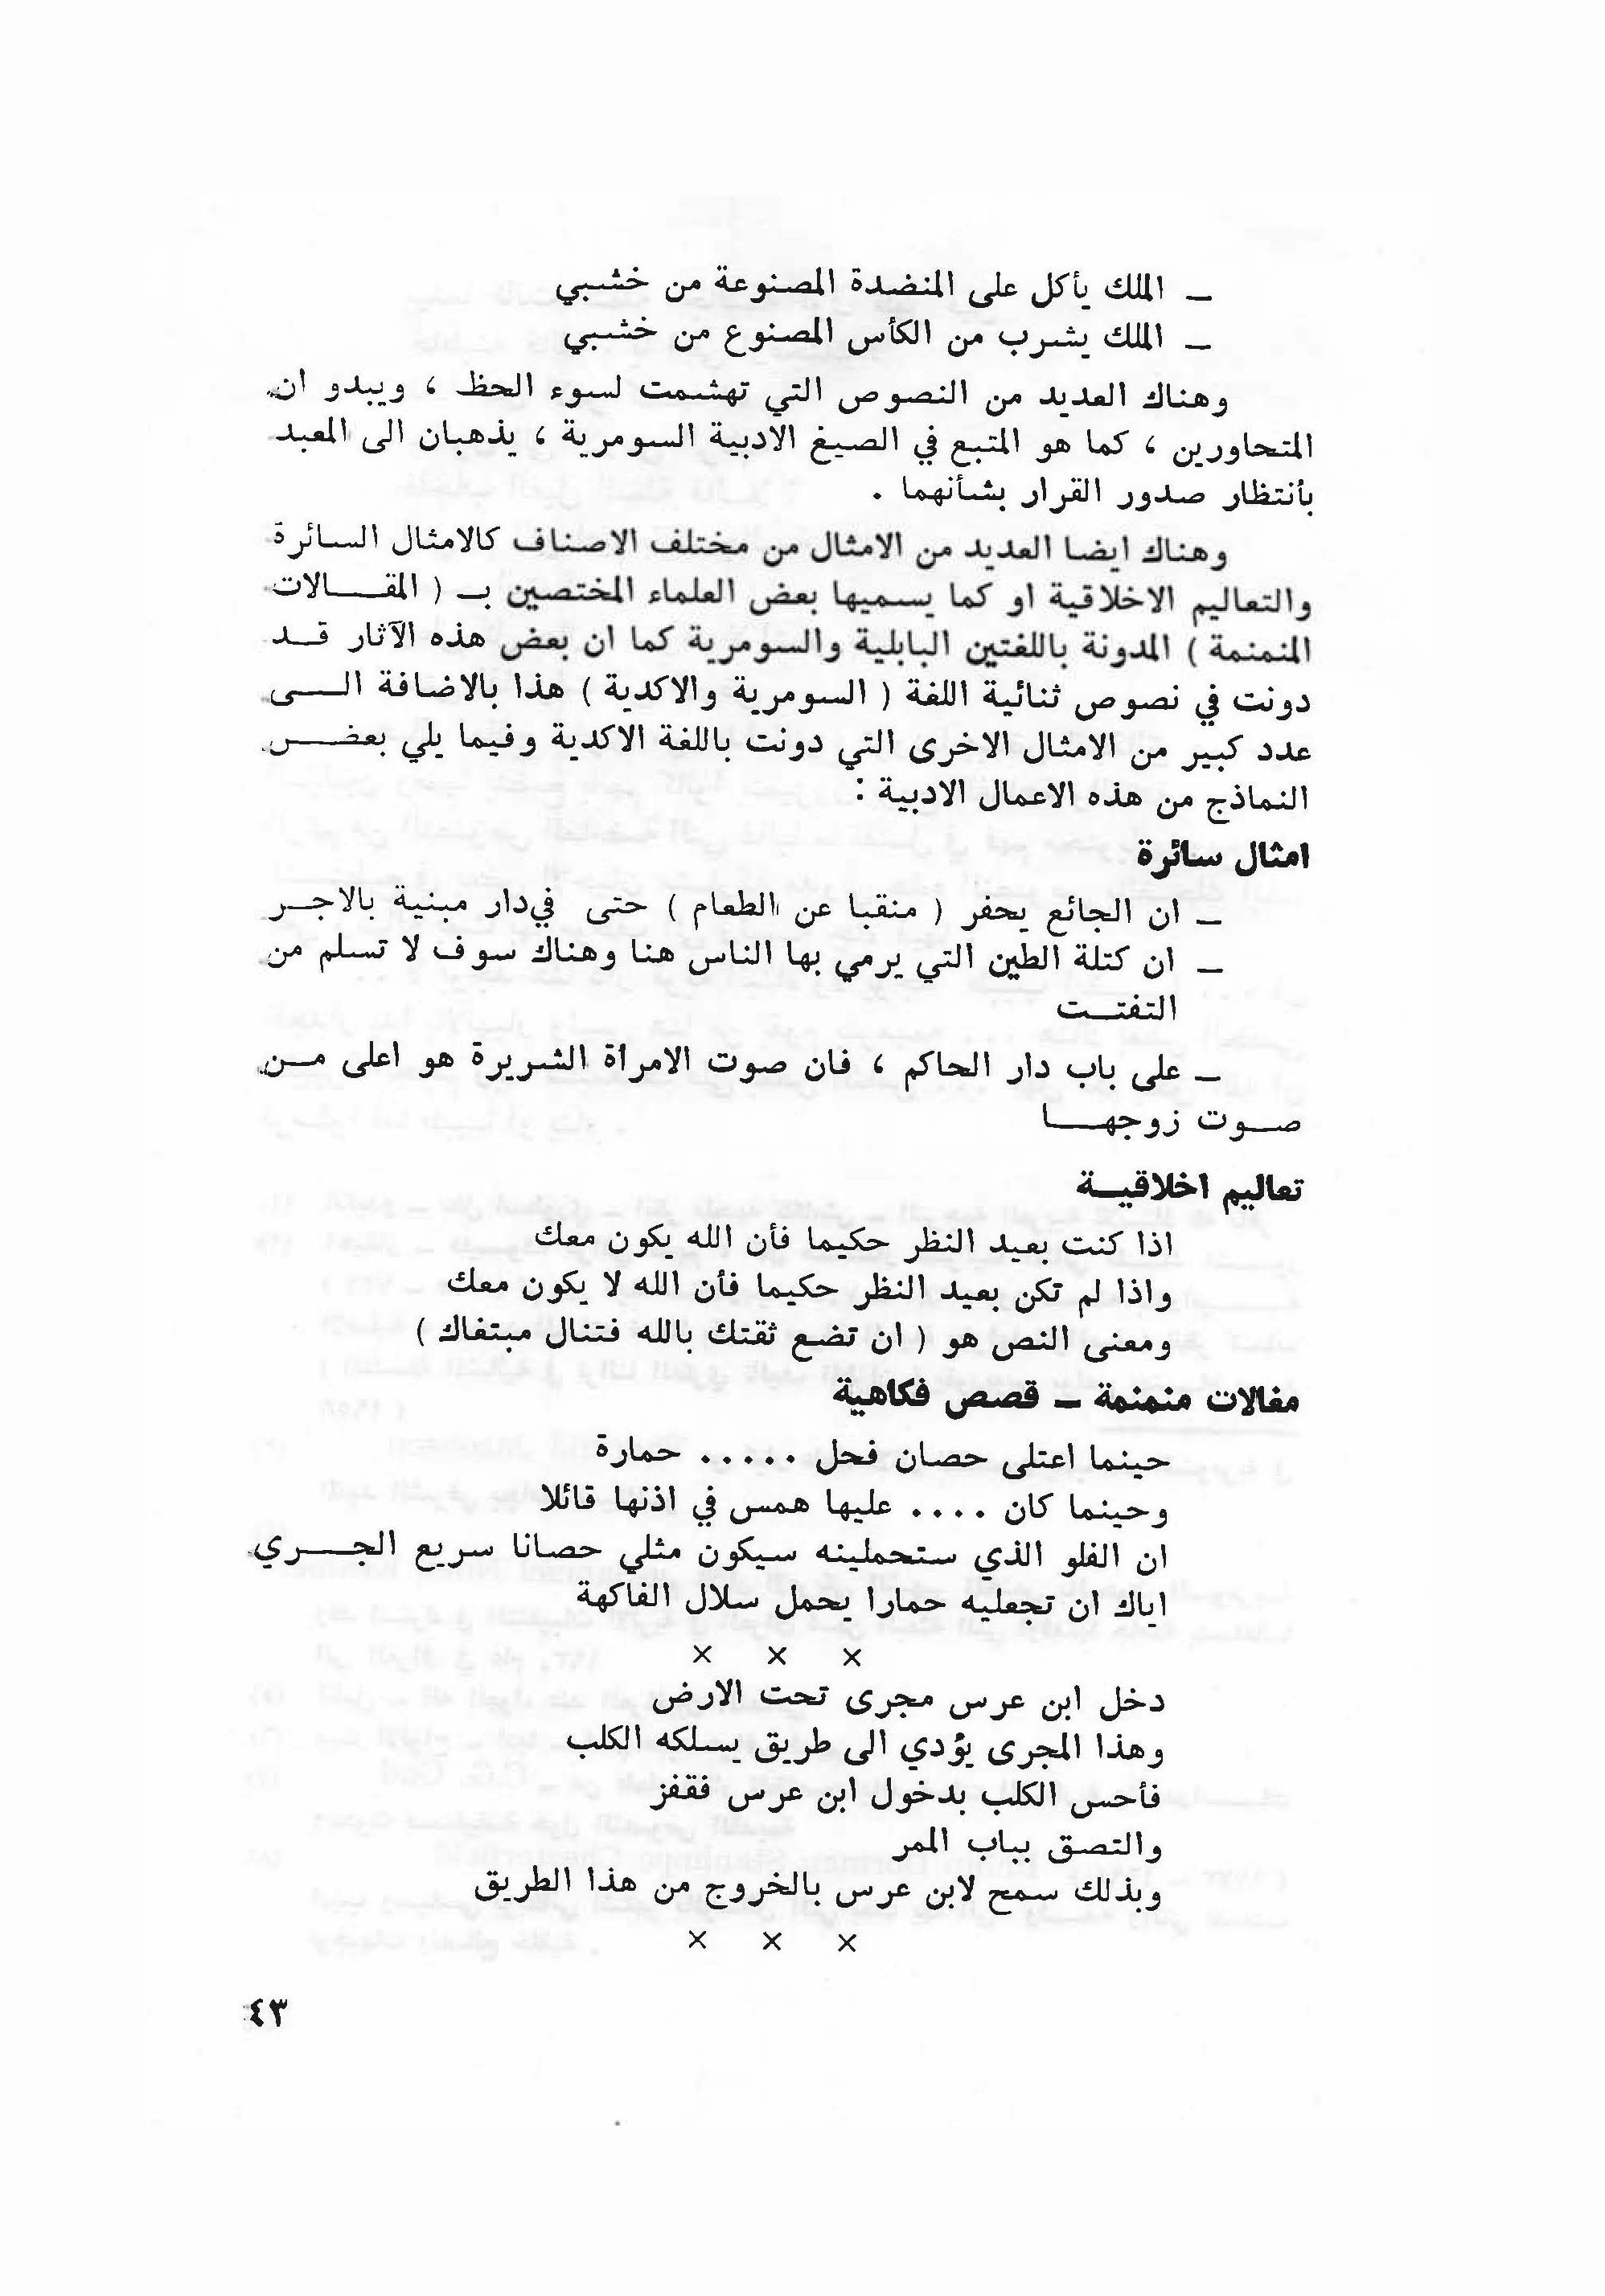 ـ الملك يأكل على المنضدة المصنوعة من خشبي
ـ الملك يشرب من الكأس المصنوع من خشبي
وهناك العديد من النصوص التي تهشمت لسوء الحظ ، ويبدو ان
المتحاورين ، كما هو المتبع في الصيغ الادبية السومرية ، يذهبان الى المعبد
بأنتظار صدور القرار بشأنهما .
وهناك ايضا العديد من الامثال من مختلف الاصناف كالامثال السائرة
والتعاليم الاخلاقية او كما يسميها بعض العلماء المختصين بـ ( المقـالات
المنمنمة ) المدونة باللغتين البابلية والسومرية كما ان بعض هذه الآثار قـد
دونت في نصوص ثنائية اللغة ( السومرية والاكدية ) هذا بالاضافة الـى
عدد كبير من الامثال الاخرى التي دونت باللغة الاكدية وفيما يلي بعض
النماذج من هذه الاعمال الادبية :
امثال سائرة
ـ ان الجائع يحفر ( منقبا عن الطعام ) حتى في دار مبنية بالاجـر
ـ ان كتلة الطين التي يرمي بها الناس هنا وهناك سوف لا تسلم من
التفتـت
ـ على باب دار الحاكم ، فان صوت الامرأة الشريرة هو اعلى مـن
صـوت زوجهـا
تعاليم اخلاقيـة
اذا كنت بعيد النظر حكيما فأن الله يكون معك
واذا لم تكن بعيد النظر حكيما فأن الله لا يكون معك
ومعنى النص هو ( ان تضع ثقتك بالله فتنال مبتغاك )
مقالات منمنمة ـ قصص فكاهية
حينما اعتلى حصان فحل ..... حمارة
وحينما كان .... عليها همس في اذنها قائلا
ان الفلو الذي ستحملينه سيكون مثلي حصانا سريع الجـري
اياك ان تجعليه حمارا يحمل سلال الفاكهة
× × ×
دخل ابن عرس مجرى تحت الارض
وهذا المجرى يؤدي الى طريق يسلكه الكلب
فأحس الكلب بدخول ابن عرس فقفز
والتصق بباب الممر
وبذلك سمح لابن عرس بالخروج من هذا الطريق
× × ×
٤٣